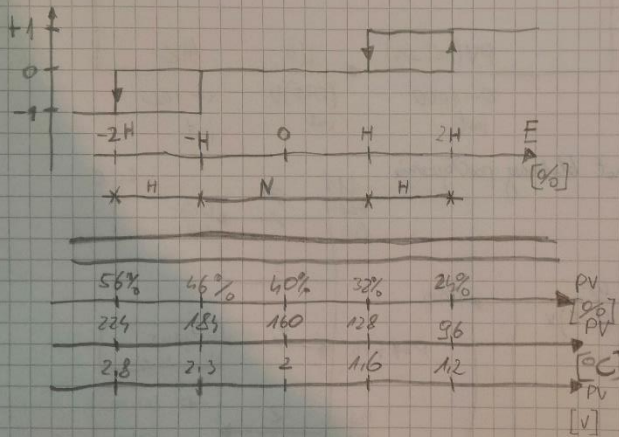 +1
0
-1
-2H -H 0 H 2H E
[%]
H N H
56% 46% 40% 32% 24% PV
[%]
224 184 160 128 96 PV
[°C]
2,8 2,3 2 1,6 1,2 PV
[V]